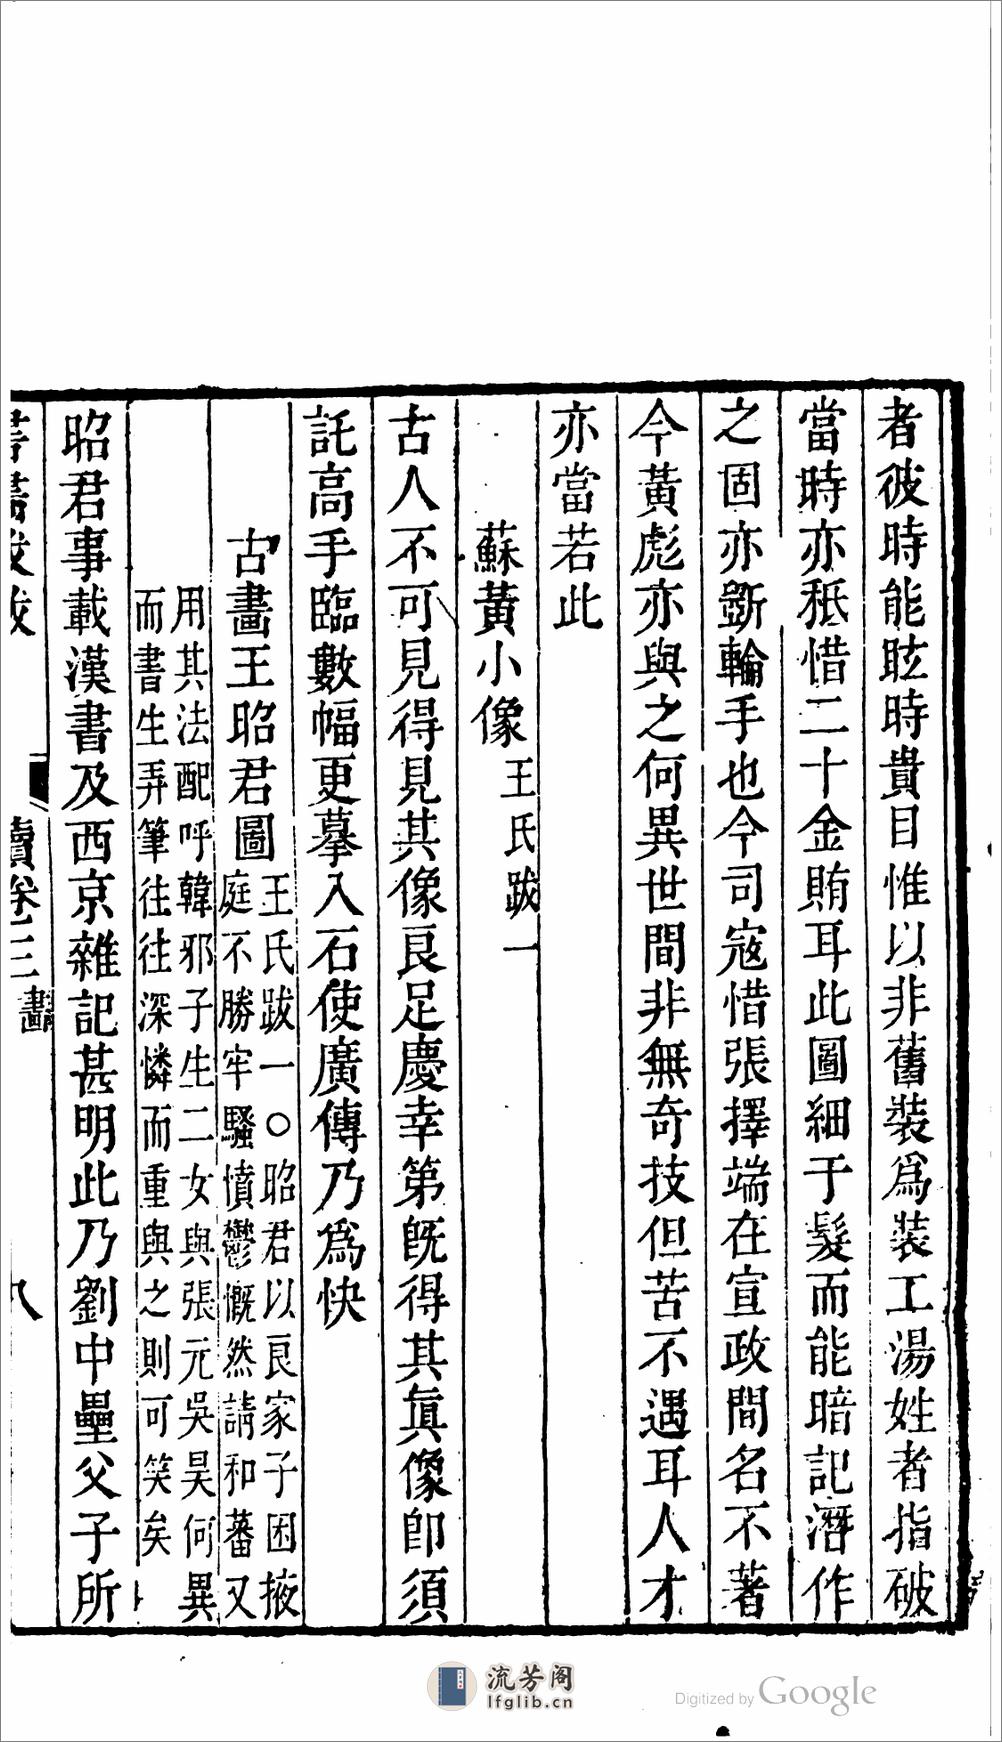 者彼時能眩時貴目惟以非舊裝爲裝工湯姓者指破
當時亦秪惜二十金賄耳此圖細于髮而能暗記潛作
之固亦斵輪手也今司寇惜張擇端在宣政間名不著
今黃彪亦與之何異世間非無奇技但苦不遇耳人才
亦當若此
蘇黃小像王氏跋一
古人不可見得見其像良足慶幸第旣得其眞像卽須
託高手臨數幅更摹入石使廣傳乃爲快
古畵王昭君圖王氏跋一〇昭君以良家子困掖
庭不勝牢騷憤鬱慨然請和蕃又
用其法配呼韓邪子生二女與張元吳昊何異
而書生弄筆往往深憐而重與之則可笑矣
昭君事載漢書及西京雜記甚明此乃劉中壘父子所
書畵跋跋
續卷三畵
八
流芳阁
lfglib.cn
Digitized by Google